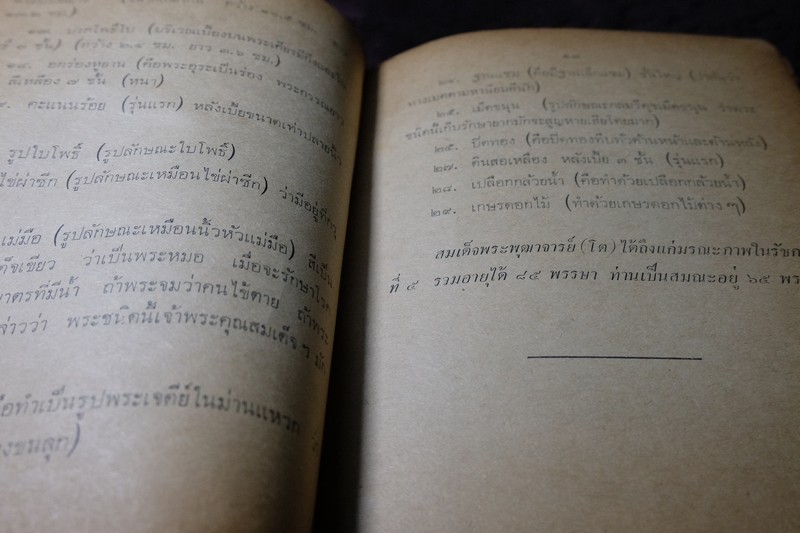 บริเวณเบื้องบนพระเศียรมี
(กว้าง ๒.๔ ซม. ยาว ๓.๖ ซม.)
๑๘. อกร่องหูยาน (คือพระอุระเป็นร่อง พระกรรณยาว
สีเหลือง ๗ ชั้น (หนา)
คะแนนร้อย (รุ่นแรก) หลังเบี้ยขนาดเท่าปลายนิ้ว
รูปใบโพธิ์ (รูปลักษณะใบโพธิ์)
ไข่ผ่าซีก (รูปลักษณะเหมือนไข่ผ่าซีก) ว่ามีอยู่ที่กรุ
แม่มือ (รูปลักษณะเหมือนนิ้วหัวแม่มือ) สีเป็น
ว่าเป็นพระหมอ เมื่อจะรักษาโรค
บาตรที่มีน้ำ ถ้าพระจมว่าคนไข้ตาย ถ้าพระ
ล่าวว่า พระชนิดนี้เจ้าพระคุณสมเด็จ ฯ มัก
ือทำเป็นรูปพระเจดีย์ในม่านแหวก
งขนลุก)
๒๕. เม็ดขนุน (รูปลักษณะกลมรีดุจเม็ดขนุน
ชนิดนี้เก็บรักษายากมักจะสูญหายเสียโดยมาก)
ปิดทอง (คือปิดทองทึบทั้งด้านหน้าและด้านหลัง)
๒๗. ดินสอเหลือง หลังเบี้ย ๓ ชั้น (รุ่นแรก)
๒๘. เปลือกกล้วยน้ำ (คือทำด้วยเปลือกกล้วยน้ำ)
๒๙. เกษรดอกไม้ (ทำด้วยเกษรดอกไม้ต่าง ๆ)
สมเด็จพระพุฒาจารย์ (โต) ได้ถึงแก่มรณะภาพในรัชก
ที่ ๕ รวมอายุได้ ๘๕ พรรษา ท่านเป็นสมณะอยู่ ๖๕ พร